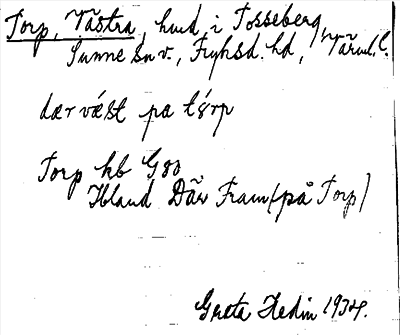 Torp, Västra, hmd i Tosseberg,
Sunne sn v., Fryksd. hd, Värml. l.
dær væst pa tørp
Torp kb G80
Ibland Där Fram (på Torp)
Greta Hedin 1934.